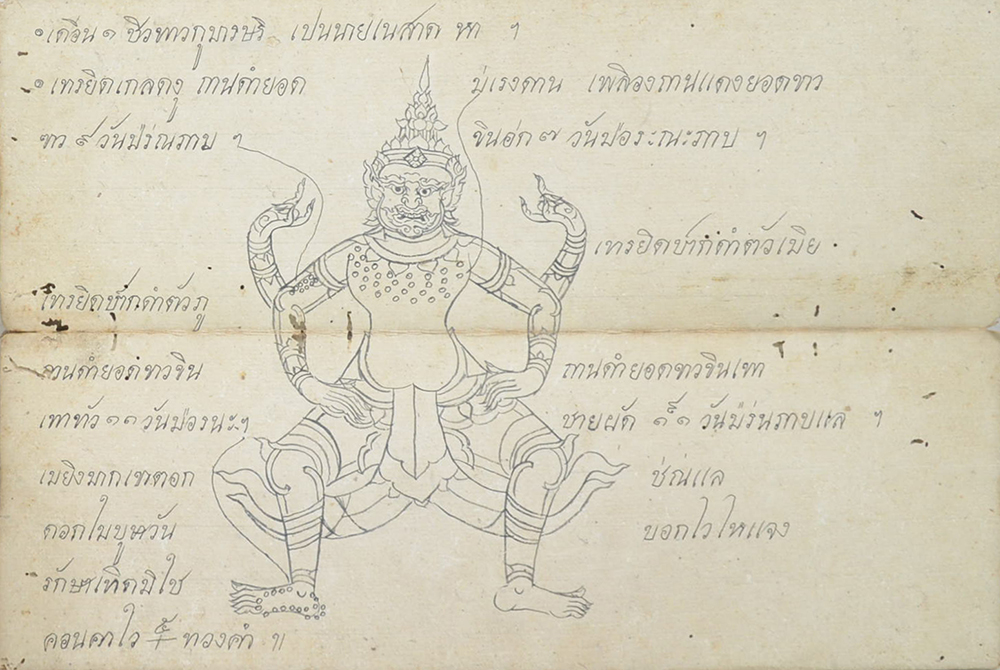 ๏ เดือน ๑ ชีวหาวกุมารษริ เปนนายเนสาด หา ฯ
๏ เทรยิดเกลดงู กานดำยอด
บ่แรงดาน เพลิองกานแดงยอดขาว
ขาว ๙ วันป่รณภาบ ฯ
ขึนอ่ก ๗ วันป่อระณะภาบ ฯ
เทรยิดปากดำตัวเมีย
เทรยิดปากดำตัวภู
กานดำยอดขาวขึน
กานดำยอดขาวขึนเพา
เทาทัว ๑๑ วันป่อรนะฯ
ชายผัด ๑๑ วันป่รนภาบแล ฯ
เมยิงมากเทตอก
ช่ณแล
ดอกไมบูษวัน
บอกไวไหแจง
รักษาเทิดมิใช
คอนคาไว ทองคำ ॥